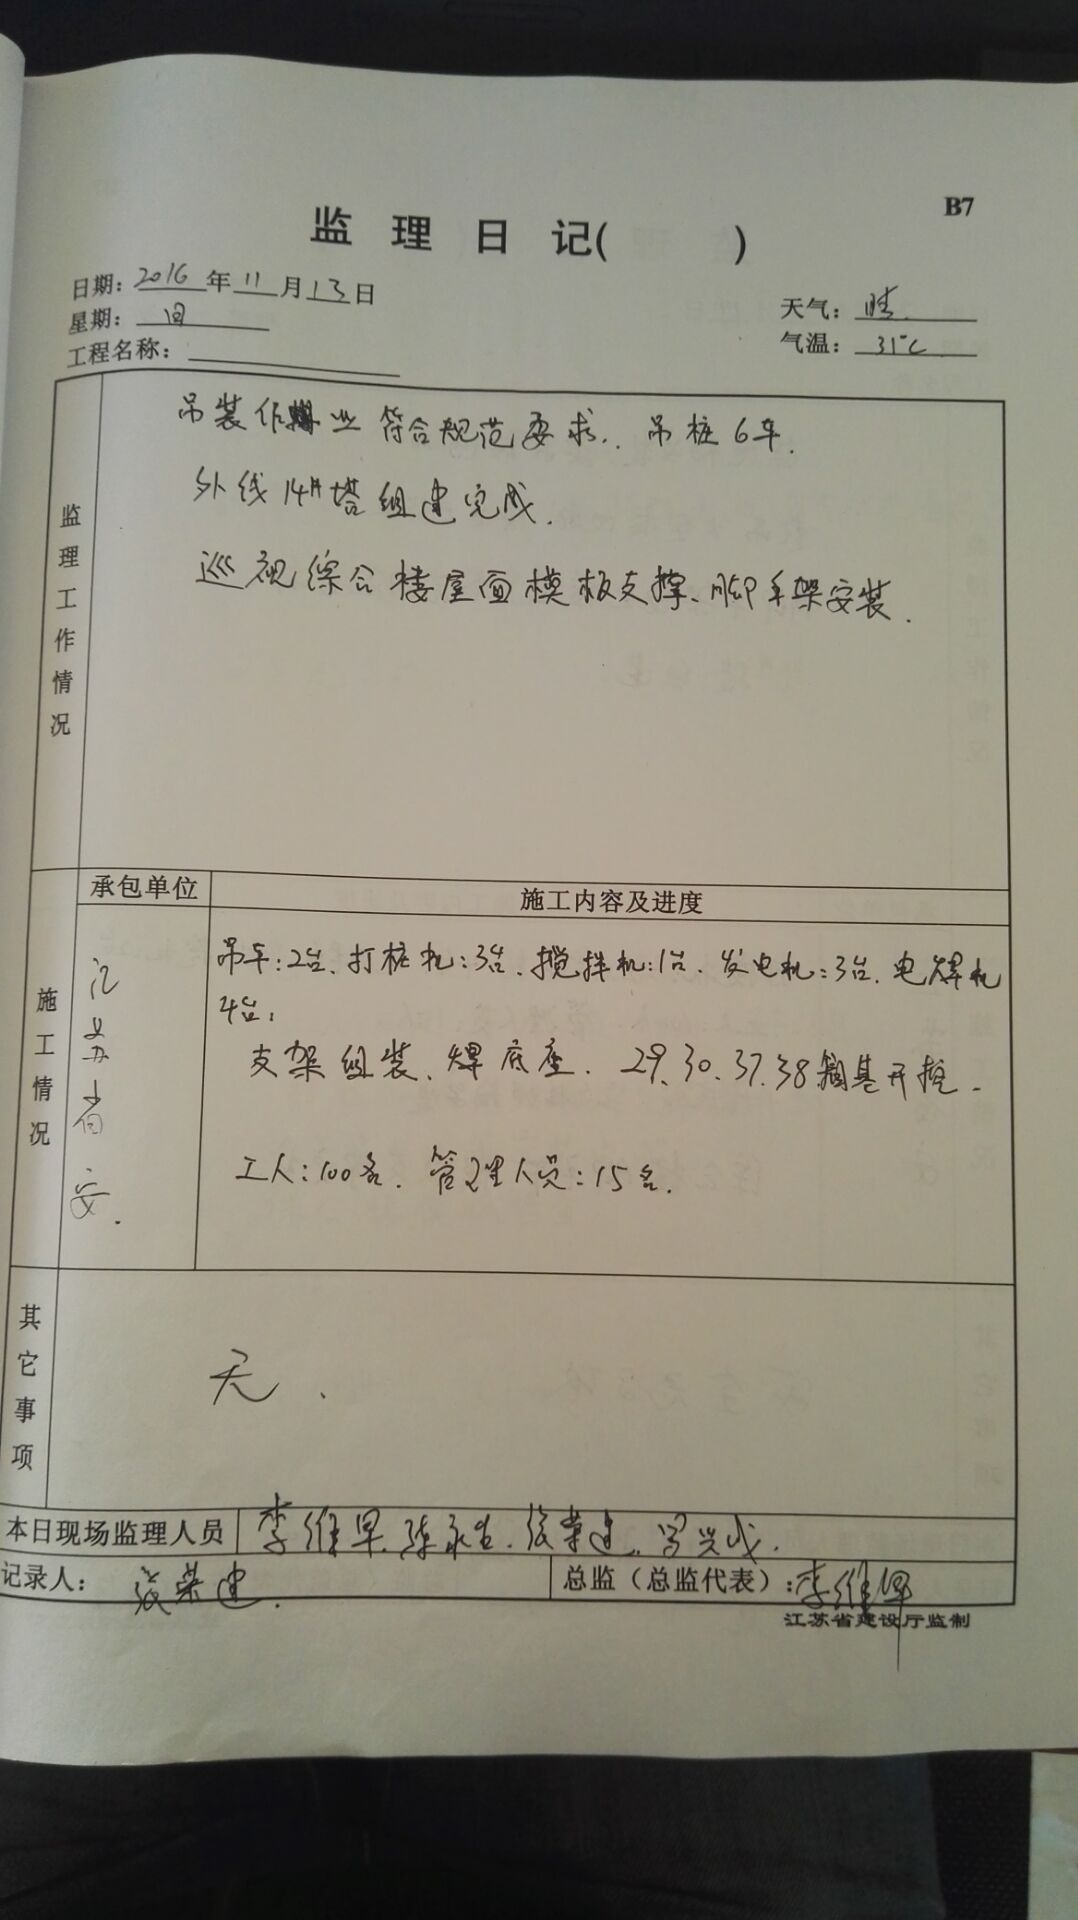 B7
监 理 日 记(        )
日期：2016年11月13日
天气：晴.
星期：日
气温：31℃
工程名称：
监理工作情况
吊装作业符合规范要求. 吊桩6车.
外线14#塔组建完成.
巡视综合楼屋面模板支撑、脚手架安装.
施工情况
承包单位
施工内容及进度
江苏省安.
吊车:2台、打桩机:3台、搅拌机:1台、发电机:3台、电焊机
4台;
支架组装、焊底座、29.30.37.38箱基开挖.
工人:100名、管理人员:15名.
其它事项
无.
本日现场监理人员
李维早.陈永吉.张荣建.
记录人：张荣建.
总监（总监代表）：李维早
江苏省建设厅监制